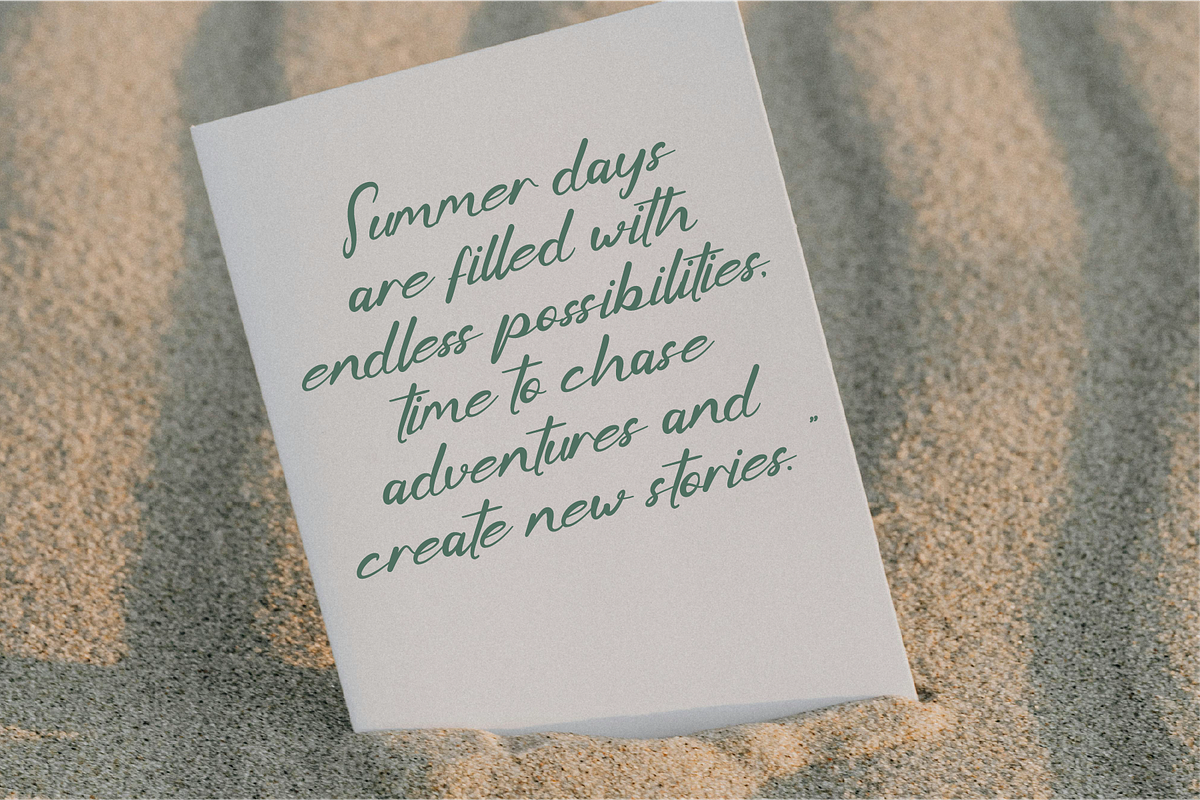 Summer days
are filled with
endless possibilities,
time to chase
adventures and
create new stories. ”